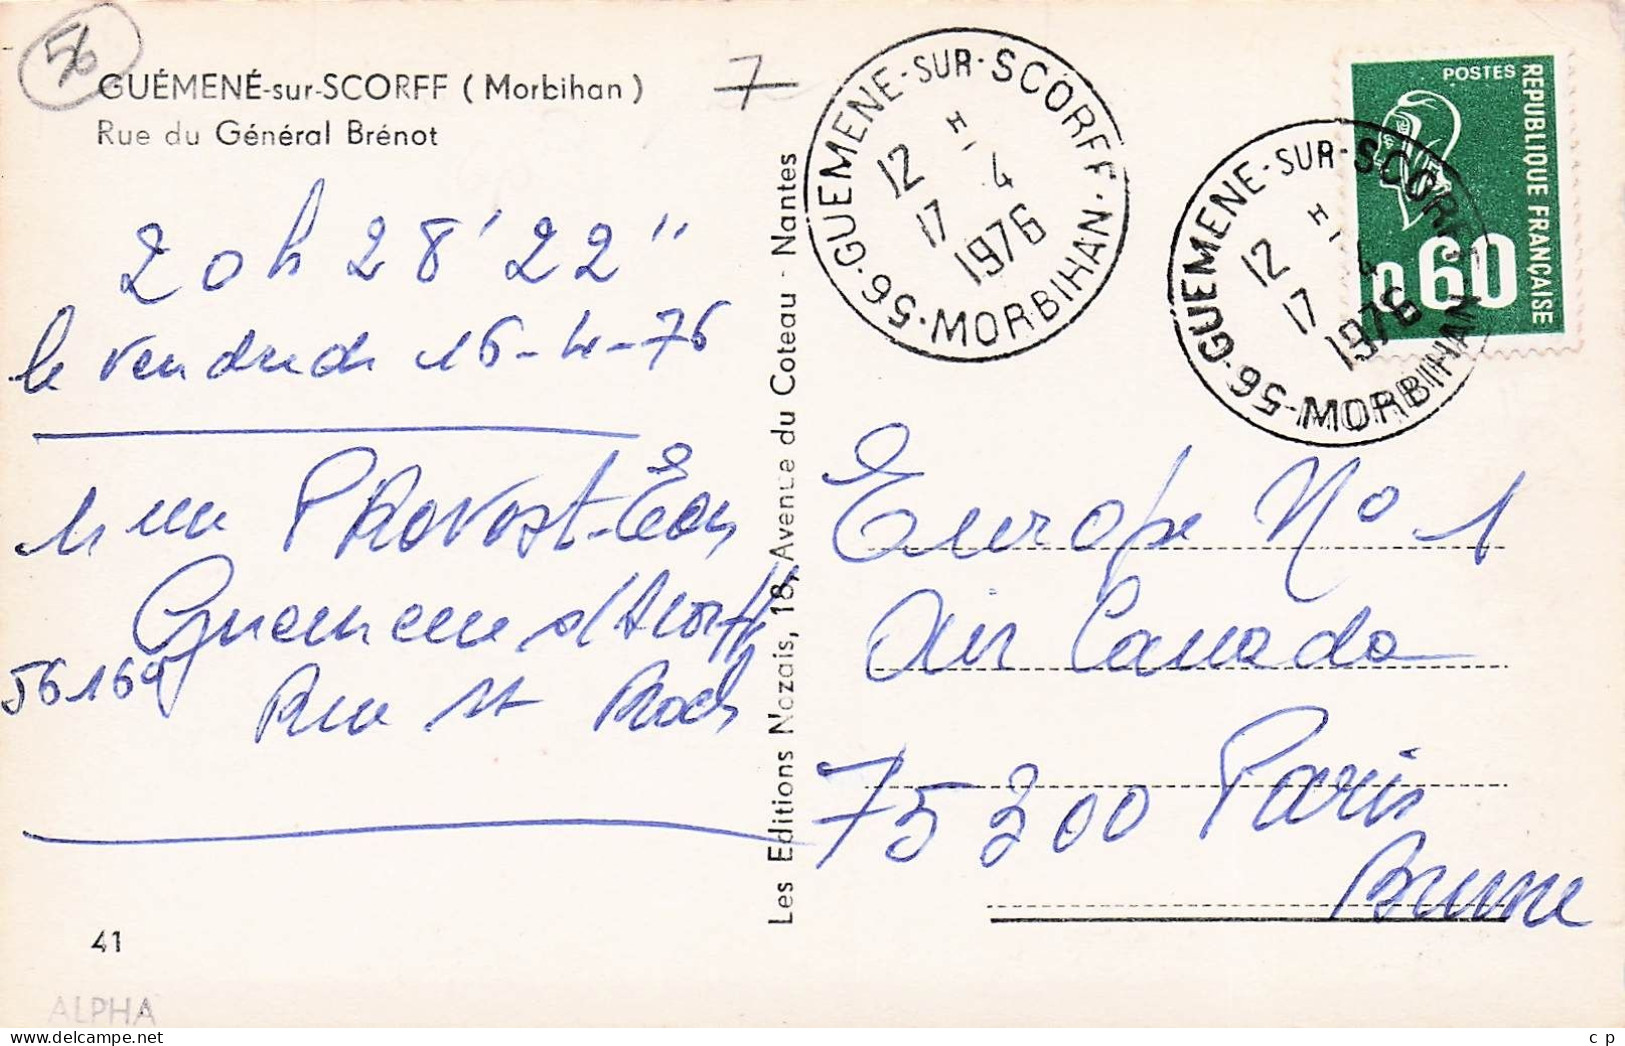 56
GUÉMENÉ-sur-SCORFF ( Morbihan )
Rue du Général Brénot
7
20h 28' 22"
le vendredi 16-4-76
Mme PROVOST-
Guemene s/ Scorff
56160
Rue St Roch
41
ALPHA
Les Editions Nozais, 18, Avenue du Coteau - Nantes
56 · GUEMENE-SUR-SCORFF · MORBIHAN ·
12 H
17 - 4
1976
56 · GUEMENE-SUR-SCORFF · MORBIHAN
12 H
17 - 4
1976
POSTES
REPUBLIQUE FRANÇAISE
0,60
Europe No 1
Air Canada
75200 Paris
Brune
c p